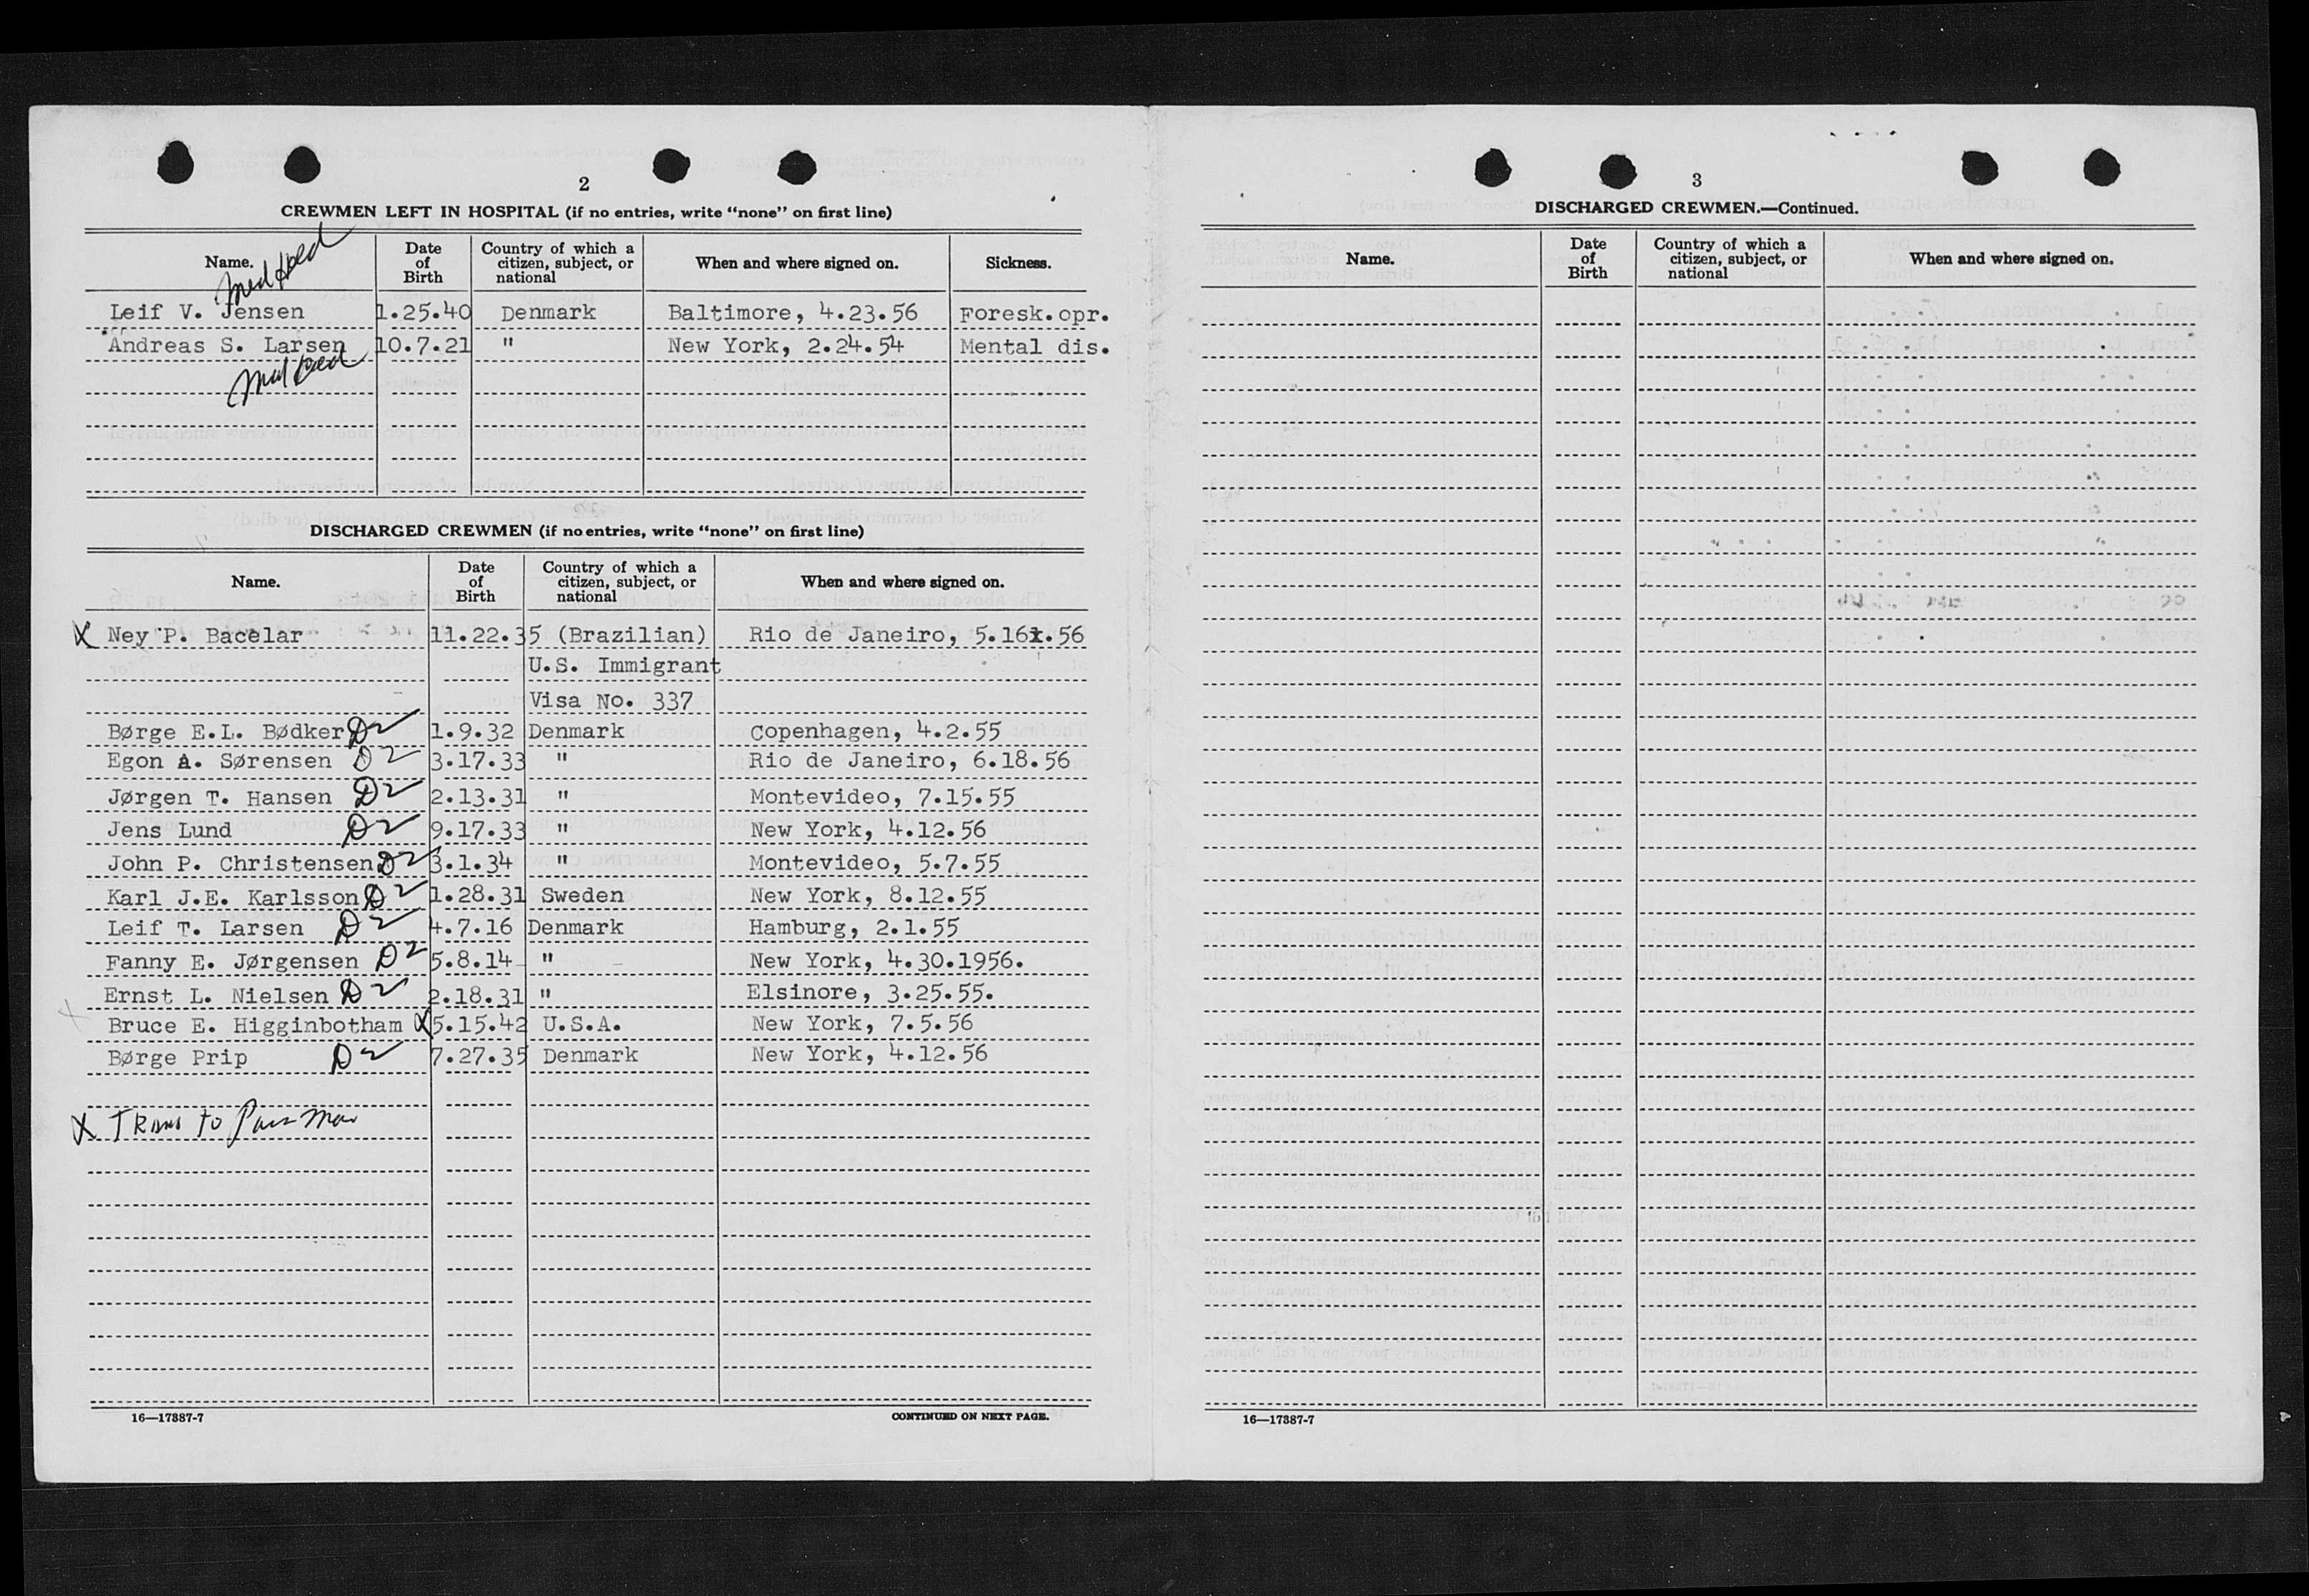 2
CREWMEN LEFT IN HOSPITAL (if no entries, write “none” on first line)
Name. Date of Birth Country of which a citizen, subject, or national When and where signed on. Sickness.
Leif V. Jensen 1.25.40 Denmark Baltimore, 4.23.56 Foresk.opr.
Andreas S. Larsen 10.7.21 " New York, 2.24.54 Mental dis.
DISCHARGED CREWMEN (if no entries, write “none” on first line)
Name. Date of Birth Country of which a citizen, subject, or national When and where signed on.
X Ney P. Bacelar 11.22.35 (Brazilian) Rio de Janeiro, 5.16.56
U.S. Immigrant
Visa No. 337
Børge E.L. Bødker D2 1.9.32 Denmark Copenhagen, 4.2.55
Egon A. Sørensen D2 3.17.33 " Rio de Janeiro, 6.18.56
Jørgen T. Hansen D2 2.13.31 " Montevideo, 7.15.55
Jens Lund D2 9.17.33 " New York, 4.12.56
John P. Christensen D2 3.1.34 " Montevideo, 5.7.55
Karl J.E. Karlsson D2 1.28.31 Sweden New York, 8.12.55
Leif T. Larsen D2 4.7.16 Denmark Hamburg, 2.1.55
Fanny E. Jørgensen D2 5.8.14 " New York, 4.30.1956.
Ernst L. Nielsen D2 2.18.31 " Elsinore, 3.25.55.
Bruce E. Higginbotham X 5.15.42 U.S.A. New York, 7.5.56
Børge Prip D2 7.27.35 Denmark New York, 4.12.56
X Trans to Pass Man
16—17887-7 CONTINUED ON NEXT PAGE.
3
DISCHARGED CREWMEN.—Continued.
Name. Date of Birth Country of which a citizen, subject, or national When and where signed on.
16—17887-7